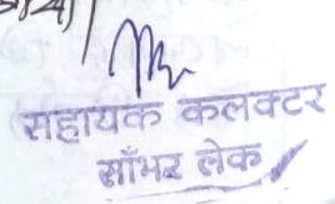 सहायक कलक्टर
साँभर लेक